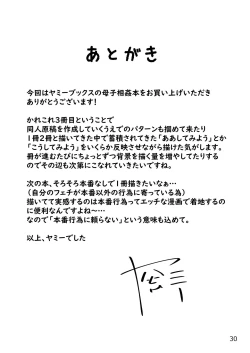 あとがき
今回はヤミーブックスの母子相姦本をお買い上げいただき
ありがとうございます！
かれこれ3冊目ということで
同人原稿を作成していくうえでのパターンも掴めて来たり
1冊2冊と描いてきた中で蓄積されてきた「ああしてみよう」とか
「こうしてみよう」をいくらか反映させながら描けた気がします。
冊が進むたびにちょっとずつ背景を描く量を増やしてたりする
のでその辺も次第になれていきたいですね。
次の本、そろそろ本番なしで1冊描きたいなぁ…
（自分のフェチが本番以外の行為に寄っている為）
描いてて実感するのは本番行為ってエッチな漫画で着地するの
に便利なんですよね～…
なので「本番行為に頼らない」という意味も込めて。
以上、ヤミーでした
30